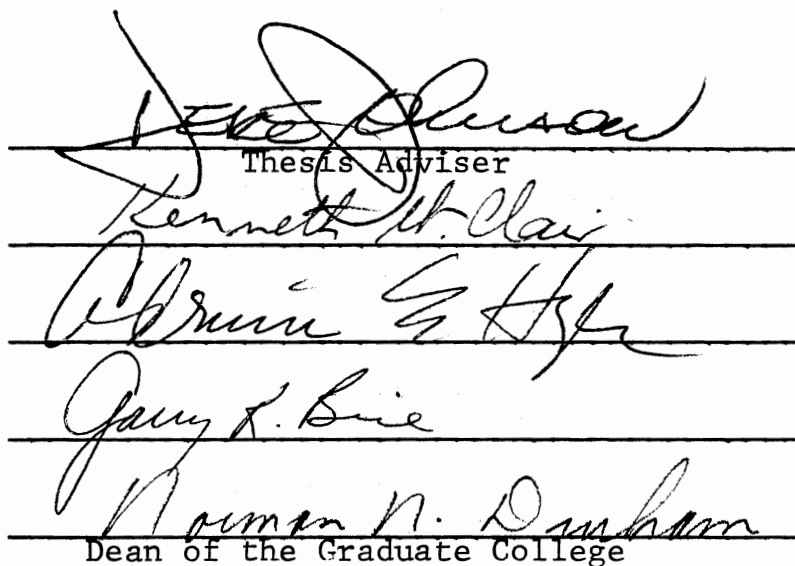 Deke Johnson
Thesis Adviser
Kenneth St. Clair
E
Garry R. Bice
Norman N. Durham
Dean of the Graduate College